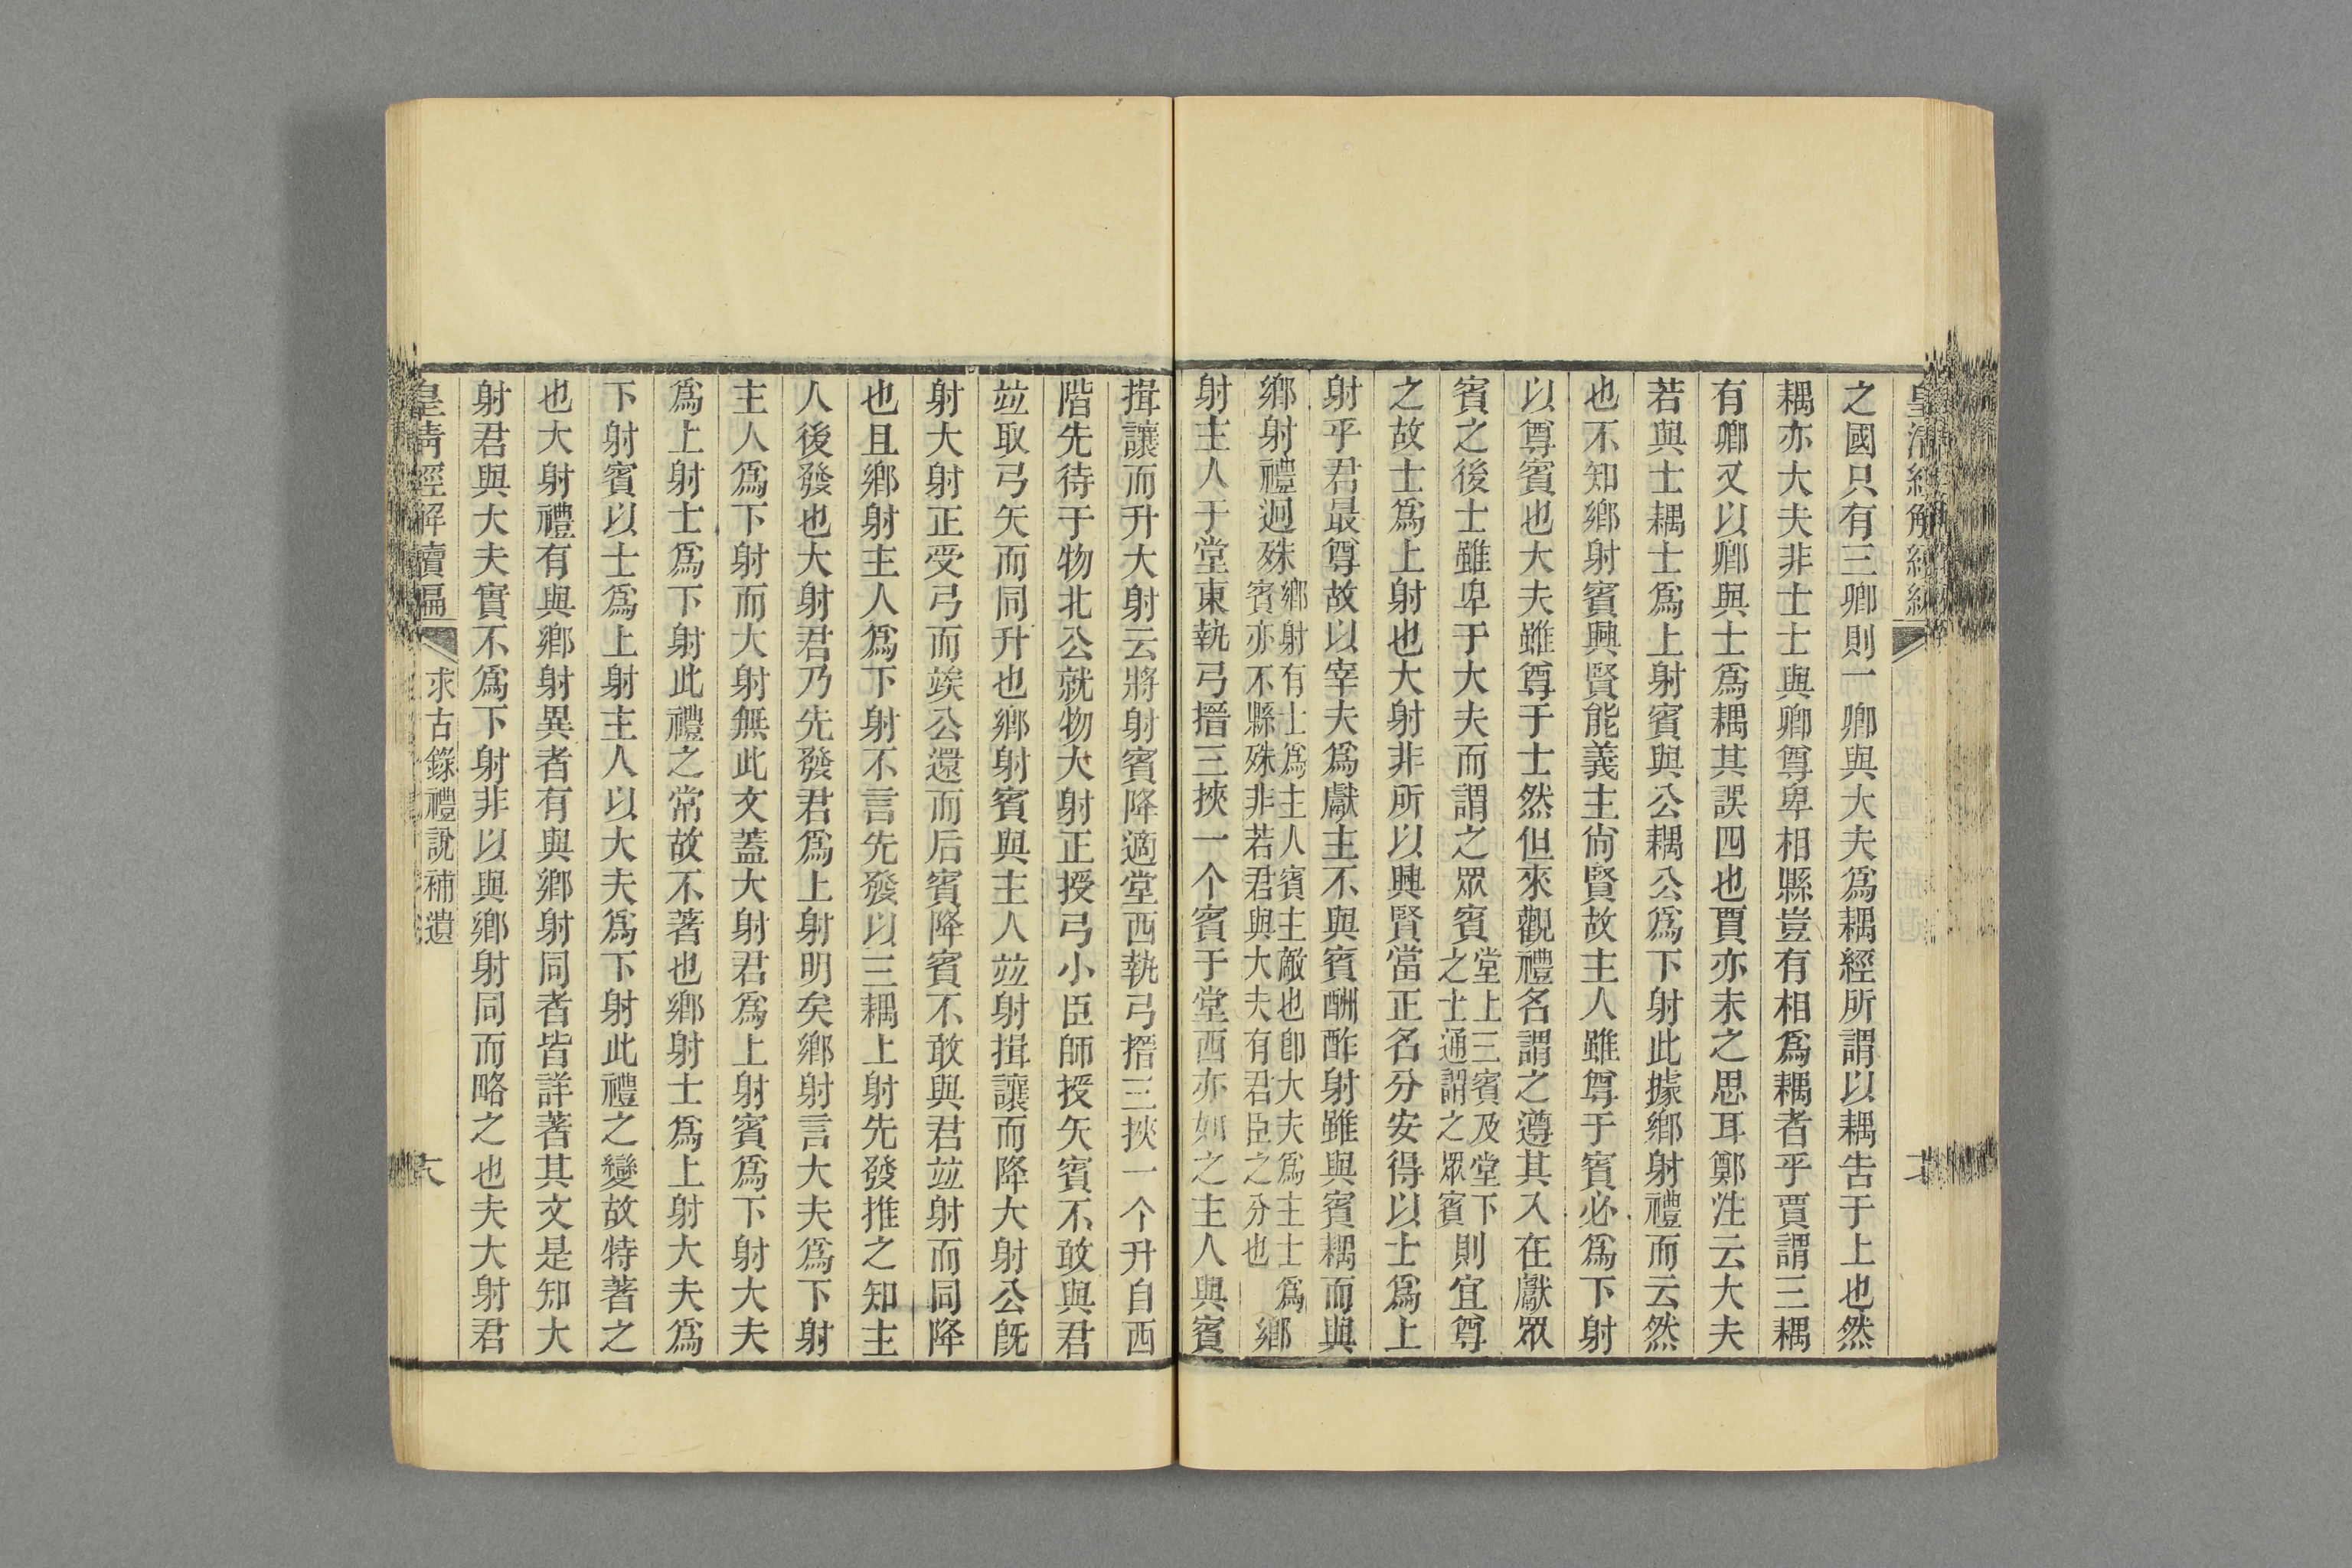 之國只有三卿則一卿與大夫爲耦經所謂以耦告于上也然
耦亦大夫非士士與卿尊卑相縣豈有相爲耦者乎賈謂三耦
有卿又以卿與士爲耦其誤四也賈亦未之思耳鄭注云大夫
若與士耦士爲上射賓與公耦公爲下射此據鄉射禮而云然
也不知鄉射賓興賢能義主尚賢故主人雖尊于賓必爲下射
以尊賓也大夫雖尊于士然但來觀禮名謂之遵其入在獻眾
賓之後士雖卑于大夫而謂之眾賓堂上三賓及堂下之士通謂之眾賓則宜尊
之故士爲上射也大射非所以興賢當正名分安得以士爲上
射乎君最尊故以宰夫爲獻主不與賓酬酢射雖與賓耦而與
鄉射禮迥殊鄉射有士爲主人賓主敵也卽大夫爲主士爲賓亦不縣殊非若君與大夫有君臣之分也鄉
射主人于堂東執弓搢三挾一个賓于堂西亦如之主人與賓
揖讓而升大射云將射賓降適堂西執弓搢三挾一个升自西
階先待于物北公就物大射正授弓小臣師授矢賓不敢與君
竝取弓矢而同升也鄉射賓與主人竝射揖讓而降大射公旣
射大射正受弓而竢公還而后賓降賓不敢與君竝射而同降
也且鄉射主人爲下射不言先發以三耦上射先發推之知主
人後發也大射君乃先發君爲上射明矣鄉射言大夫爲下射
主人爲下射而大射無此文蓋大射君爲上射賓爲下射大夫
爲上射士爲下射此禮之常故不著也鄉射士爲上射大夫爲
下射賓以士爲上射主人以大夫爲下射此禮之變故特著之
也大射禮有與鄉射異者有與鄉射同者皆詳著其文是知大
射君與大夫實不爲下射非以與鄉射同而略之也夫大射君
皇清經解續編 求古錄禮說補遺